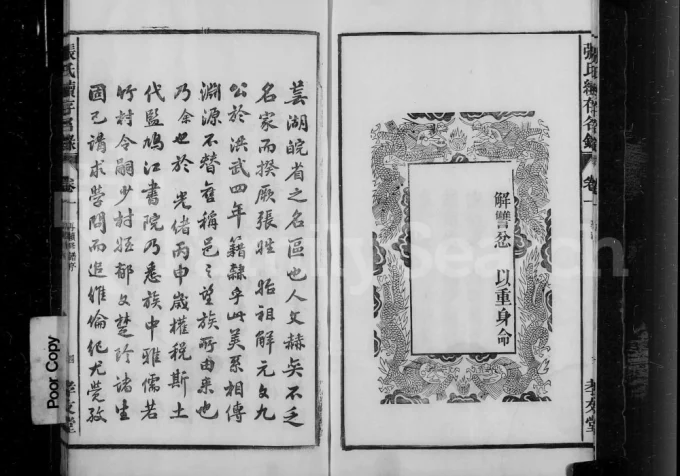 解讐忿
以重身命
蕪湖皖省之名區也人文赫矣不乏
名家而揆厥張姓始祖解元文九
公於洪武四年籍隸乎此美系相傳
淵源不替咸稱邑之望族所由来也
乃余也於光緒丙申歲權税斯土
代監鳩江書院乃悉族中雅儒若
竹村令嗣少村姪郁文楚珍諸生
固已講求學問而追維倫紀尤覺孜
張氏續存名錄
卷一
孝友堂
Poor Copy
FamilySearch